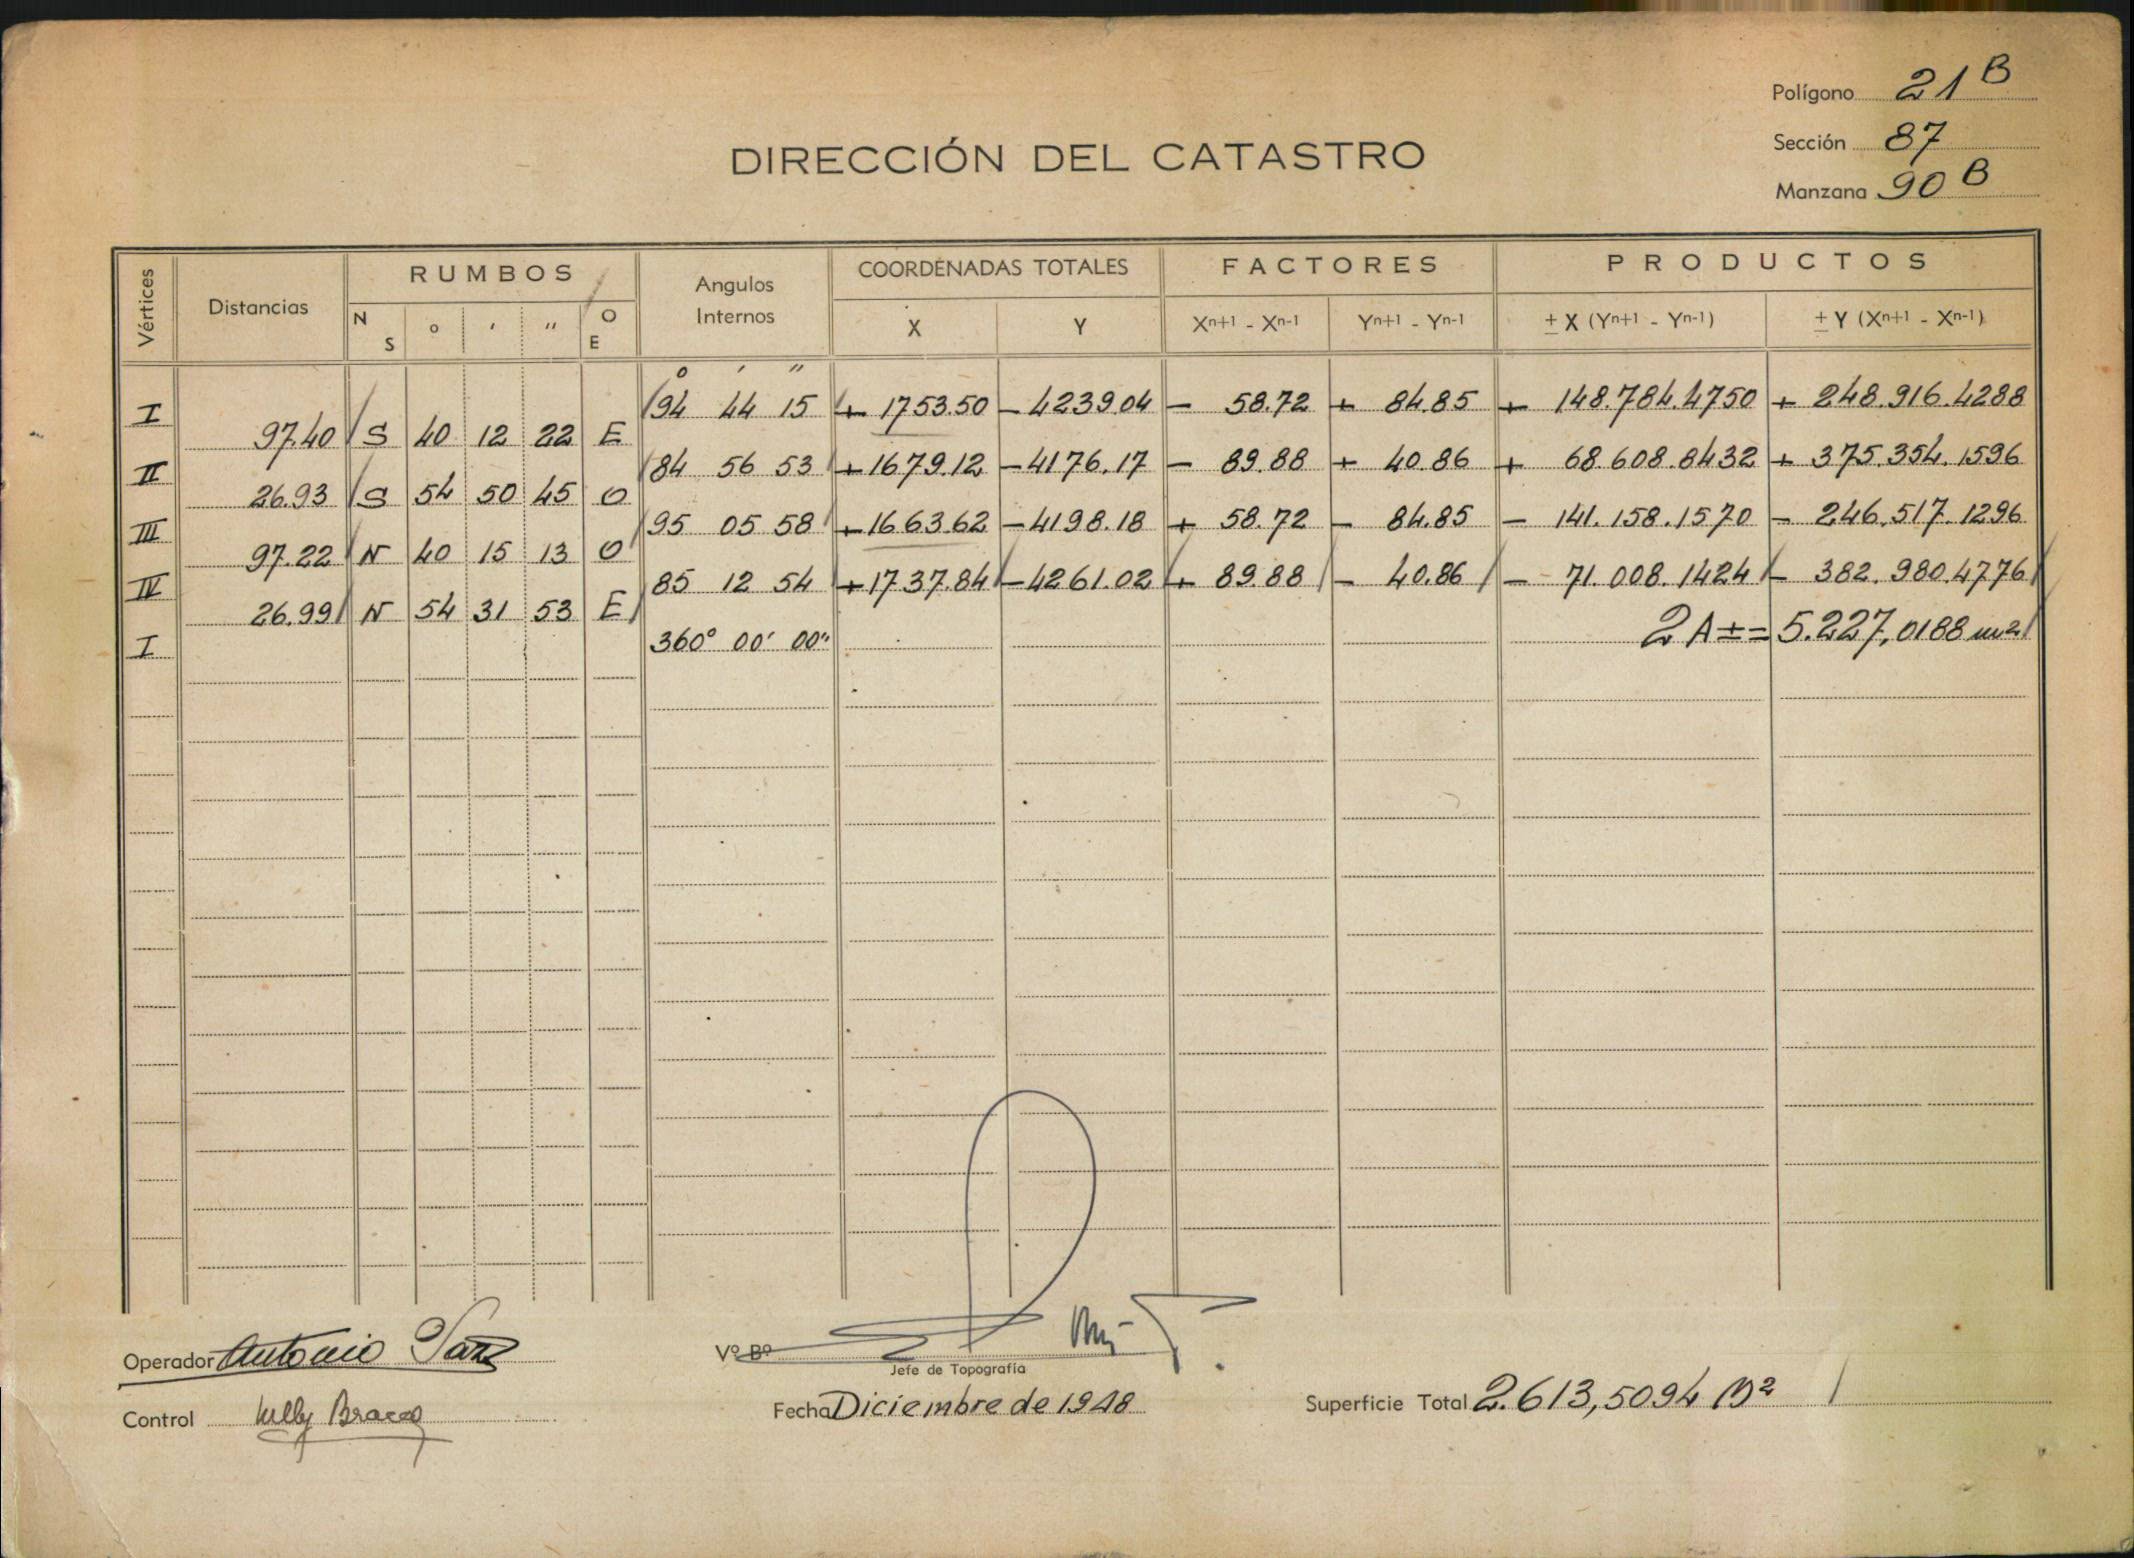 Polígono 21 B
Sección 87
Manzana 90 B
DIRECCIÓN DEL CATASTRO
Vértices Distancias RUMBOS Angulos Internos COORDENADAS TOTALES FACTORES PRODUCTOS
N S ° ' " O E X Y Xn+1 - Xn-1 Yn+1 - Yn-1 ± X (Yn+1 - Yn-1) ± Y (Xn+1 - Xn-1)
° ' "
I 94 44 15 + 1753.50 - 4239.04 - 58.72 + 84.85 + 148.784.4750 + 248.916.4288
97.40 S 40 12 22 E
II 84 56 53 + 1679.12 - 4176.17 - 89.88 + 40.86 + 68.608.8432 + 375.354.1596
26.93 S 54 50 45 O
III 95 05 58 + 1663.62 - 4198.18 + 58.72 - 84.85 - 141.158.1570 - 246.517.1296
97.22 N 40 15 13 O
IV 85 12 54 + 1737.84 - 4261.02 + 89.88 - 40.86 - 71.008.1424 - 382.980.4776
26.99 N 54 31 53 E
I 360° 00' 00" 2 A ± = 5.227,0188 m2
Operador Antonio
Vº Bº
Jefe de Topografía
Control
Fecha Diciembre de 1948
Superficie Total 2.613,5094 M2